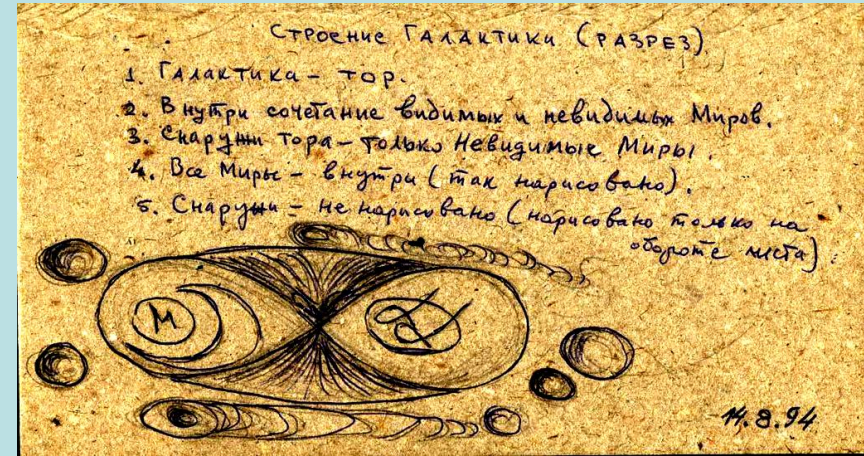 Строение Галактики (разрез)
1. Галактика – тор.
2. Внутри сочетание видимых и невидимых Миров.
3. Снаружи тора – только Невидимые Миры.
4. Все Миры – внутри (так нарисовано).
5. Снаружи – не нарисовано (нарисовано только на
обороте листа).
М
14.8.94